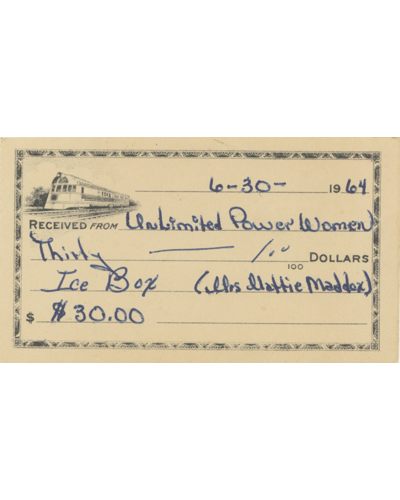 6-30- 1964
RECEIVED FROM Unlimited Power Women
Thirty — /00 100 DOLLARS
Ice Box (Mrs Mattie Maddox)
$ $30.00